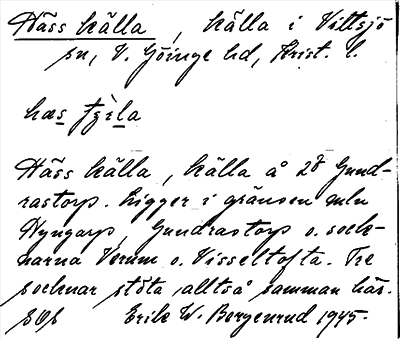 Häss källa, källa i Vittsjö
sn, V. Göinge hd, Krist. l.
hæs tʃèla
Häss källa, källa å 2⁸ Gund-
rastorp. Ligger i gränsen mln
Nyngarp, Gundrastorp o. sock-
narna Verum o. Visseltofta. Tre
socknar stöta alltså samman här.
Erik W. Borgenrud 1945.